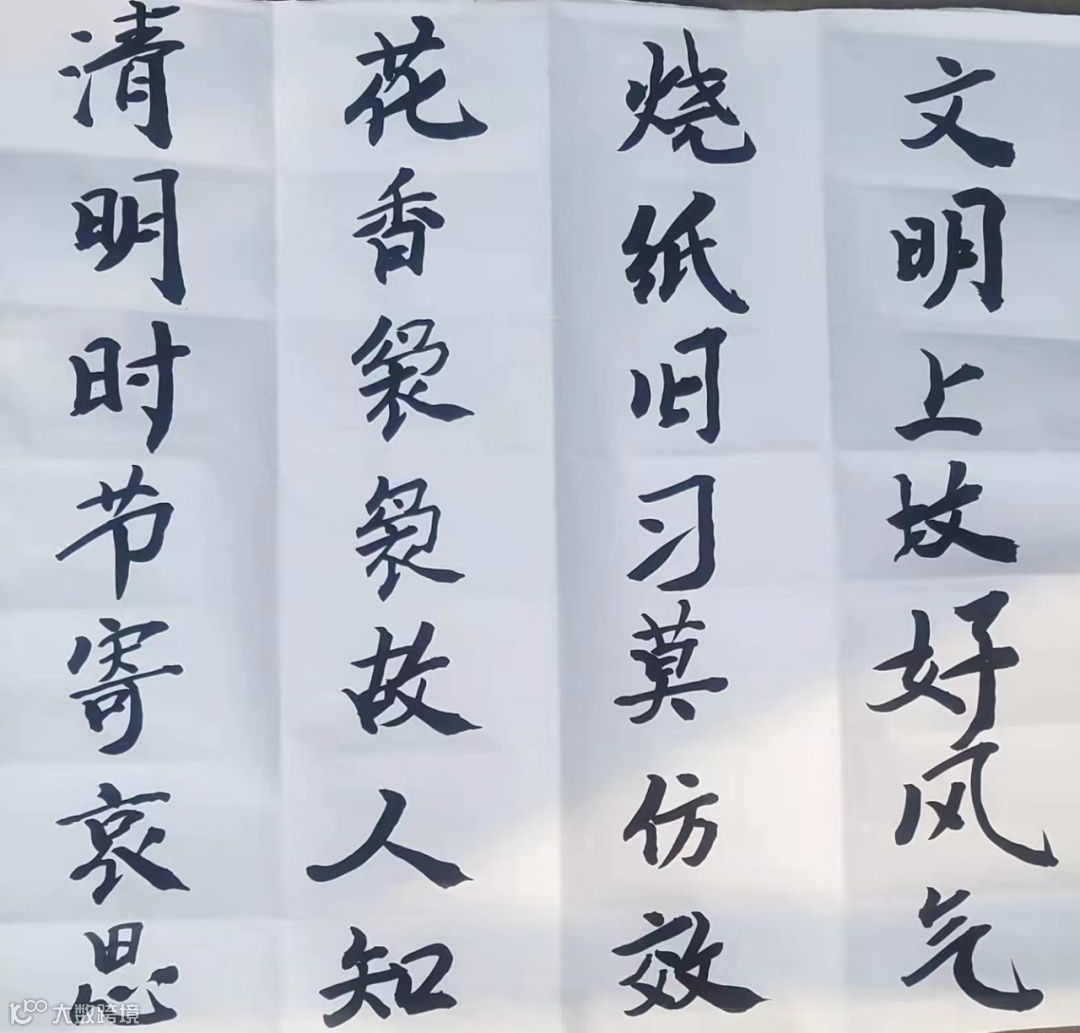 清明时节寄哀思
花香袅袅故人知
烧纸旧习莫仿效
文明上坟好风气
大数跨境